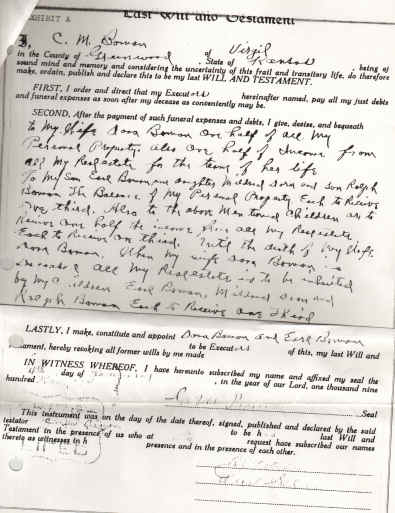 EXHIBIT A
Last Will and Testament
I, C. M. Bowan of Virgil
in the County of Greenwood, State of Kansas, being of
sound mind and memory and considering the uncertainty of this frail and transitory life, do therefore
make, ordain, publish and declare this to be my last WILL AND TESTAMENT.
FIRST, I order and direct that my Executors hereinafter named, pay all my just debts
and funeral expenses as soon after my decease as conveniently may be.
SECOND, After the payment of such funeral expenses and debts, I give, devise, and bequeath
to My Wife Dora Bowan one half of all My
Personal Property also one half of Income from
all My Real estate for the term of her life
To My Son Earl Bowan and daughter Mildred and son Ralph
Bowan The Balance of My Personal Property Each to Receive
one third. Also to the above Mentioned Children are to
Receive one half the income from all my Real estate
Each to Receive one third. Until the death of My Wife
Dora Bowan. When My wife Dora Bowan is
deceased all My Real estate is to be inherited
by My Children Earl Bowan, Mildred and
Ralph Bowan Each to Receive one third
LASTLY, I make, constitute and appoint Dora Bowan and Earl Bowan
to be Executors of this, my last Will and
ament, hereby revoking all former wills by me made
IN WITNESS WHEREOF, I have hereunto subscribed my name and affixed my seal the
day of, in the year of our Lord, one thousand nine
hundred
Seal
This instrument was on the day of the date thereof, signed, published and declared by the said
testator to be his last Will and
Testament in the presence of us who at request have subscribed our names
thereto as witnesses in presence and in the presence of each other.